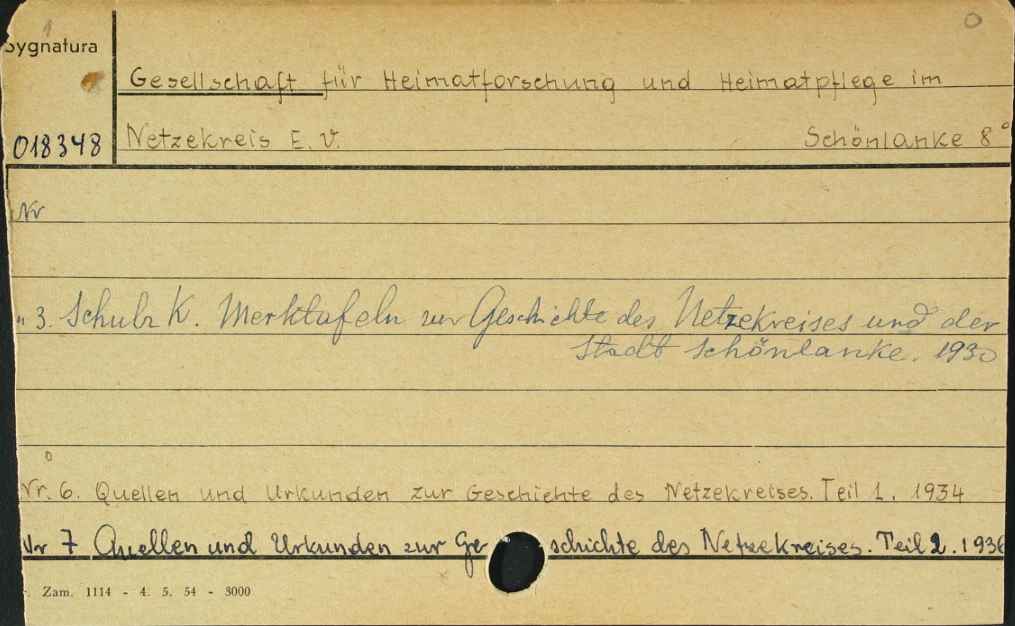 Sygnatura
Gesellschaft für Heimatforschung und Heimatpflege im
018348 Netzekreis E. V. Schönlanke 8°
Nr
" 3. Schulz K. Merktafeln zur Geschichte des Netzekreises und der
Stadt Schönlanke. 1930
Nr. 6. Quellen und Urkunden zur Geschichte des Netzekreises. Teil 1. 1934
Nr 7 Quellen und Urkunden zur Geschichte des Netzekreises. Teil 2. 1936
Zam. 1114 - 4. 5. 54 - 3000